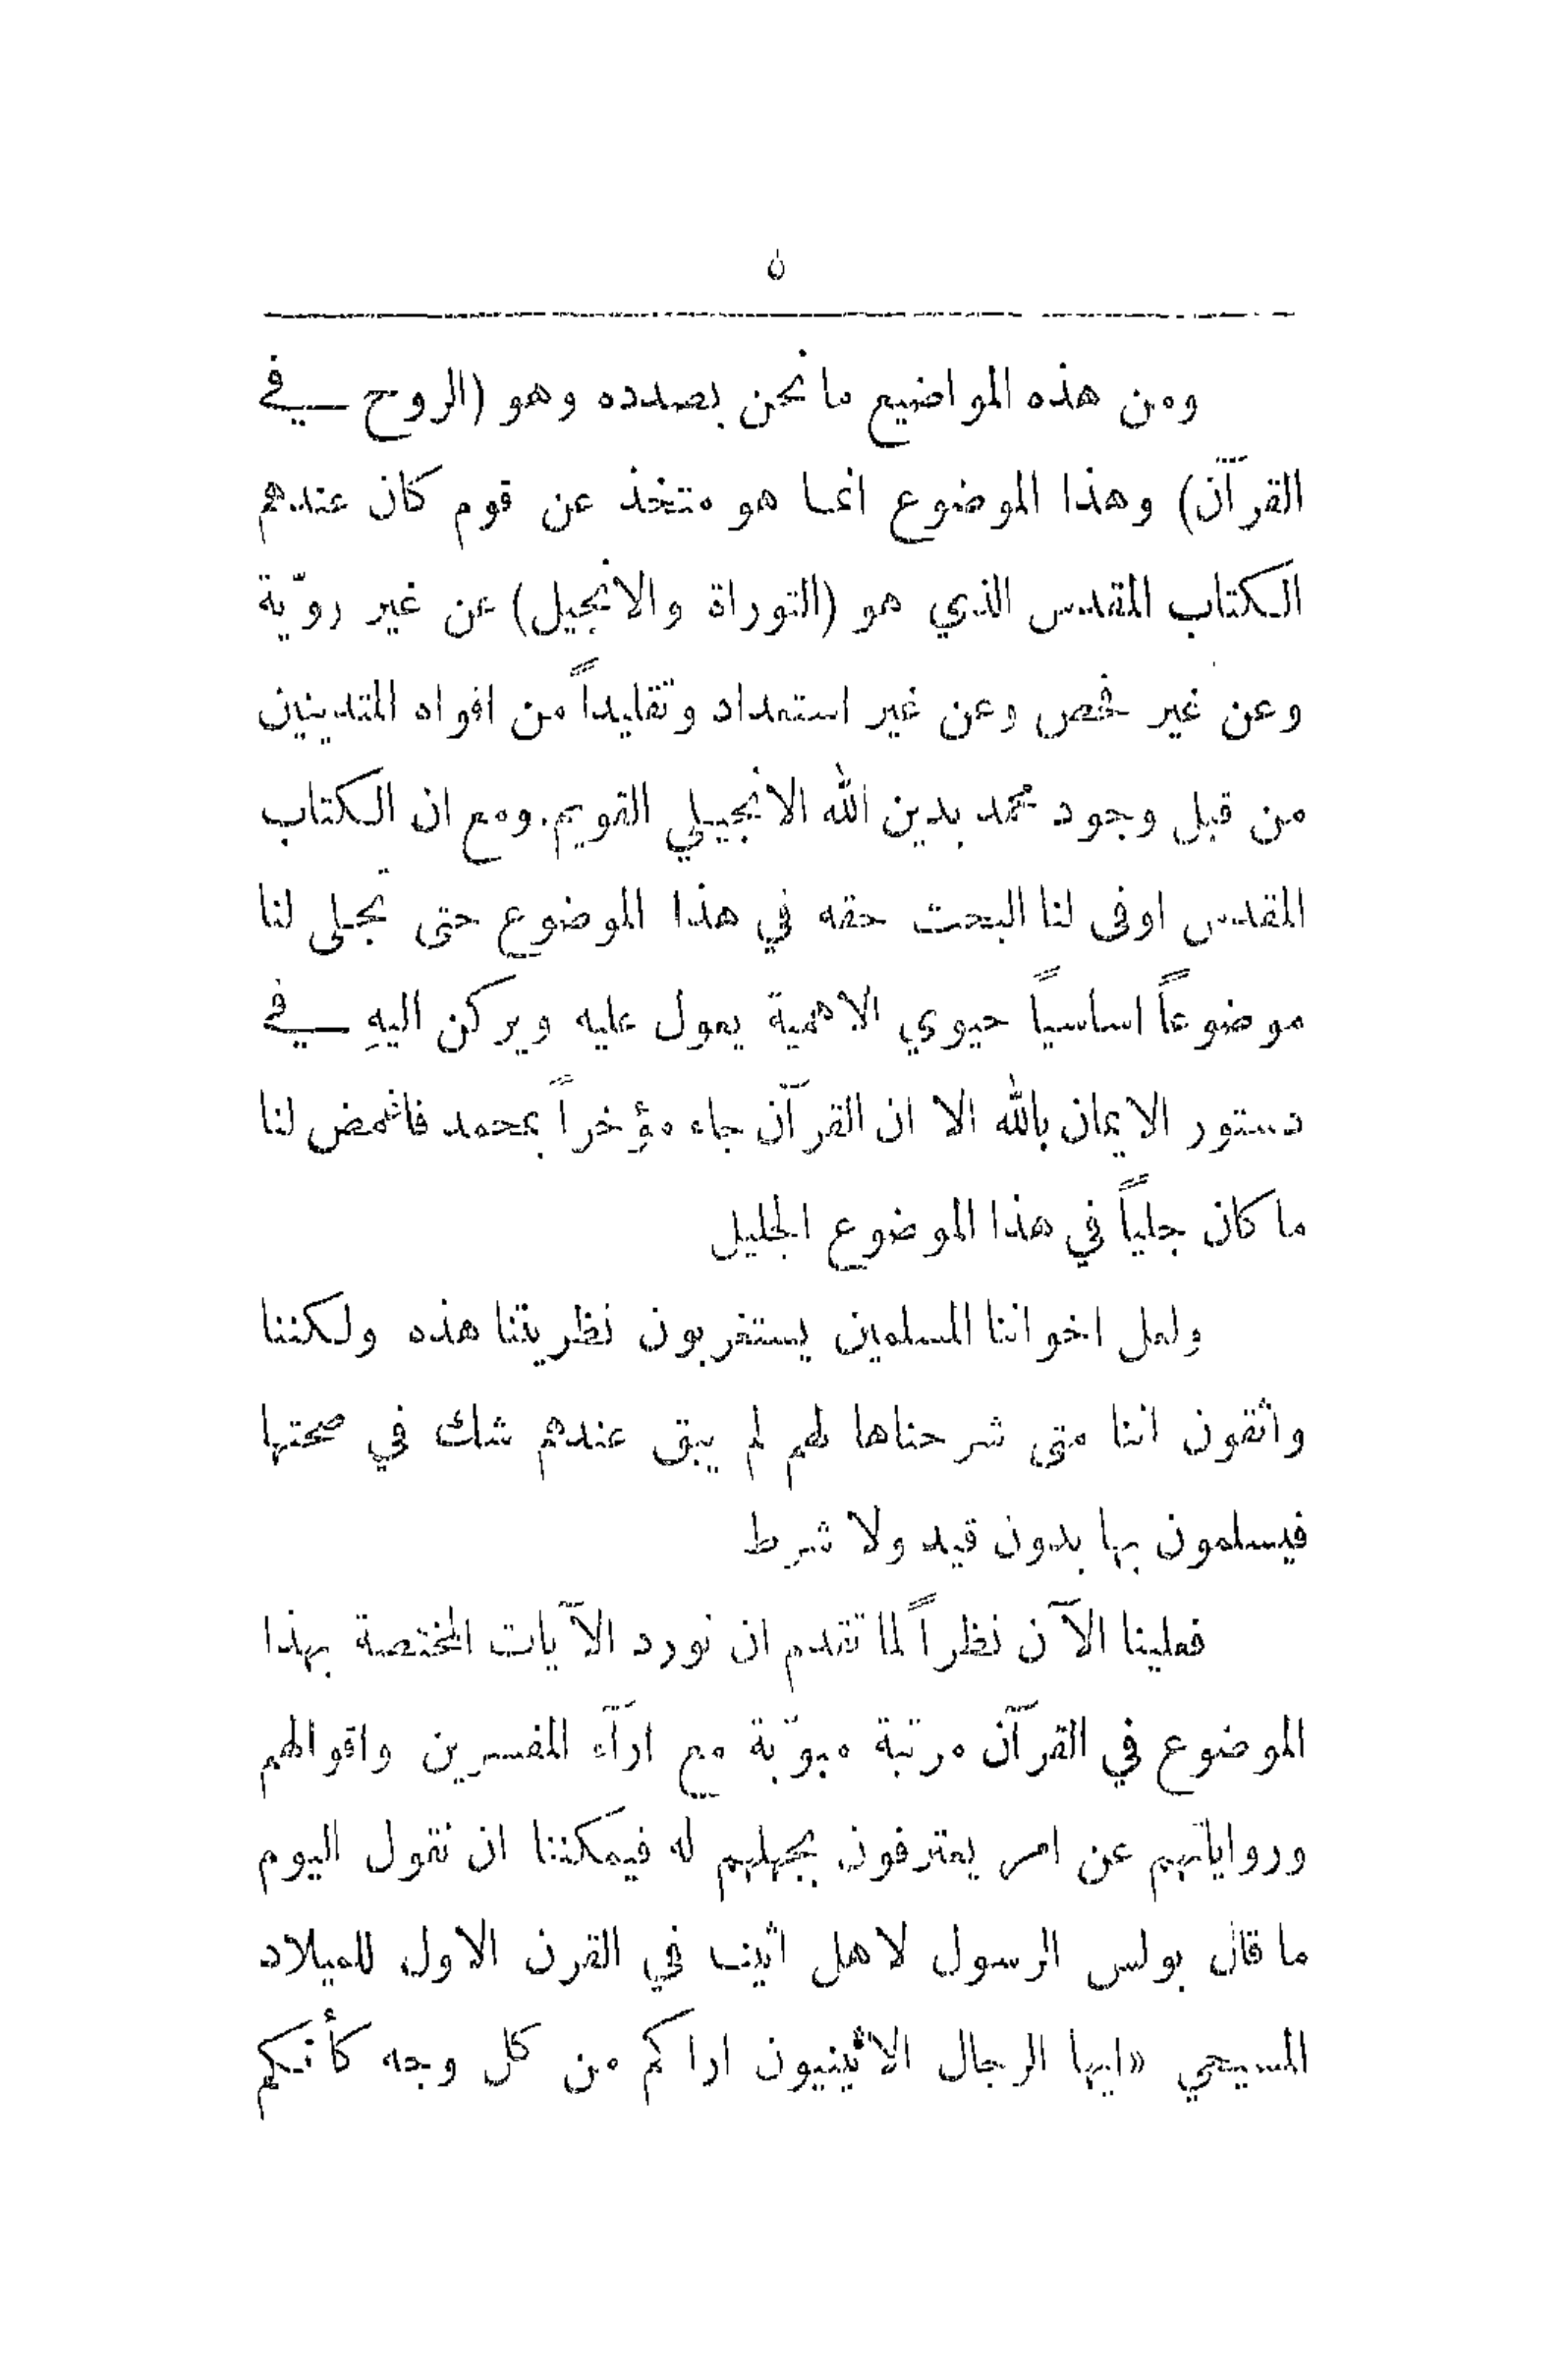 ٥
ومن هذه المواضيع ما نحن بصدده وهو (الروح في
القرآن) وهذا الموضوع انما هو متخذ عن قوم كان عندهم
الكتاب المقدس الذي هو (التوراة والانجيل) عن غير روّية
وعن غير فحص وعن غير استعداد وتقليداً من افواه المتدينين
من قبل وجود محمد بدين الله الانجيلي القويم. ومع ان الكتاب
المقدس اوفى لنا البحث حقه في هذا الموضوع حتى تجلى لنا
موضوعاً اساسياً حيوي الاهمية يعول عليه ويركن اليهِ في
دستور الايمان بالله الا ان القرآن جاء مؤخراً بمحمد فاغمض لنا
ما كان جلياً في هذا الموضوع الجليل
ولعل اخواننا المسلمين يستغربون نظريتنا هذه ولكننا
واثقون اننا متى شرحناها لهم لم يبق عندهم شك في صحتها
فيسلمون بها بدون قيد ولا شرط
فعلينا الآن نظراً لما تقدم ان نورد الآيات المختصة بهذا
الموضوع في القرآن مرتبة مبوّبة مع ارآء المفسرين واقوالهم
ورواياتهم عن امر يعترفون بجهلهم له فيمكننا ان نقول اليوم
ما قال بولس الرسول لاهل اثينا في القرن الاول للميلاد
المسيحي «ايها الرجال الاثينيون اراكم من كل وجه كأنكم